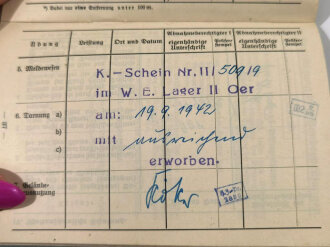 *) Dabei nur ohne Entfernung unter 100 m.
Übung
Leistung
Ort und Datum
Abnahmeberechtigter I
eigenhändige Unterschrift
Prüfer-Stempel
Abnahmeberechtigter II
eigenhändige Unterschrift
Prüfer-Stempel
5. Meldewesen
K.-Schein Nr. III/509/9
im W. E. Lager II Oer
6. Tarnung a)
am: 19.9.1942
b)
mit ausreichend
c)
erworben.
7. Gelände-